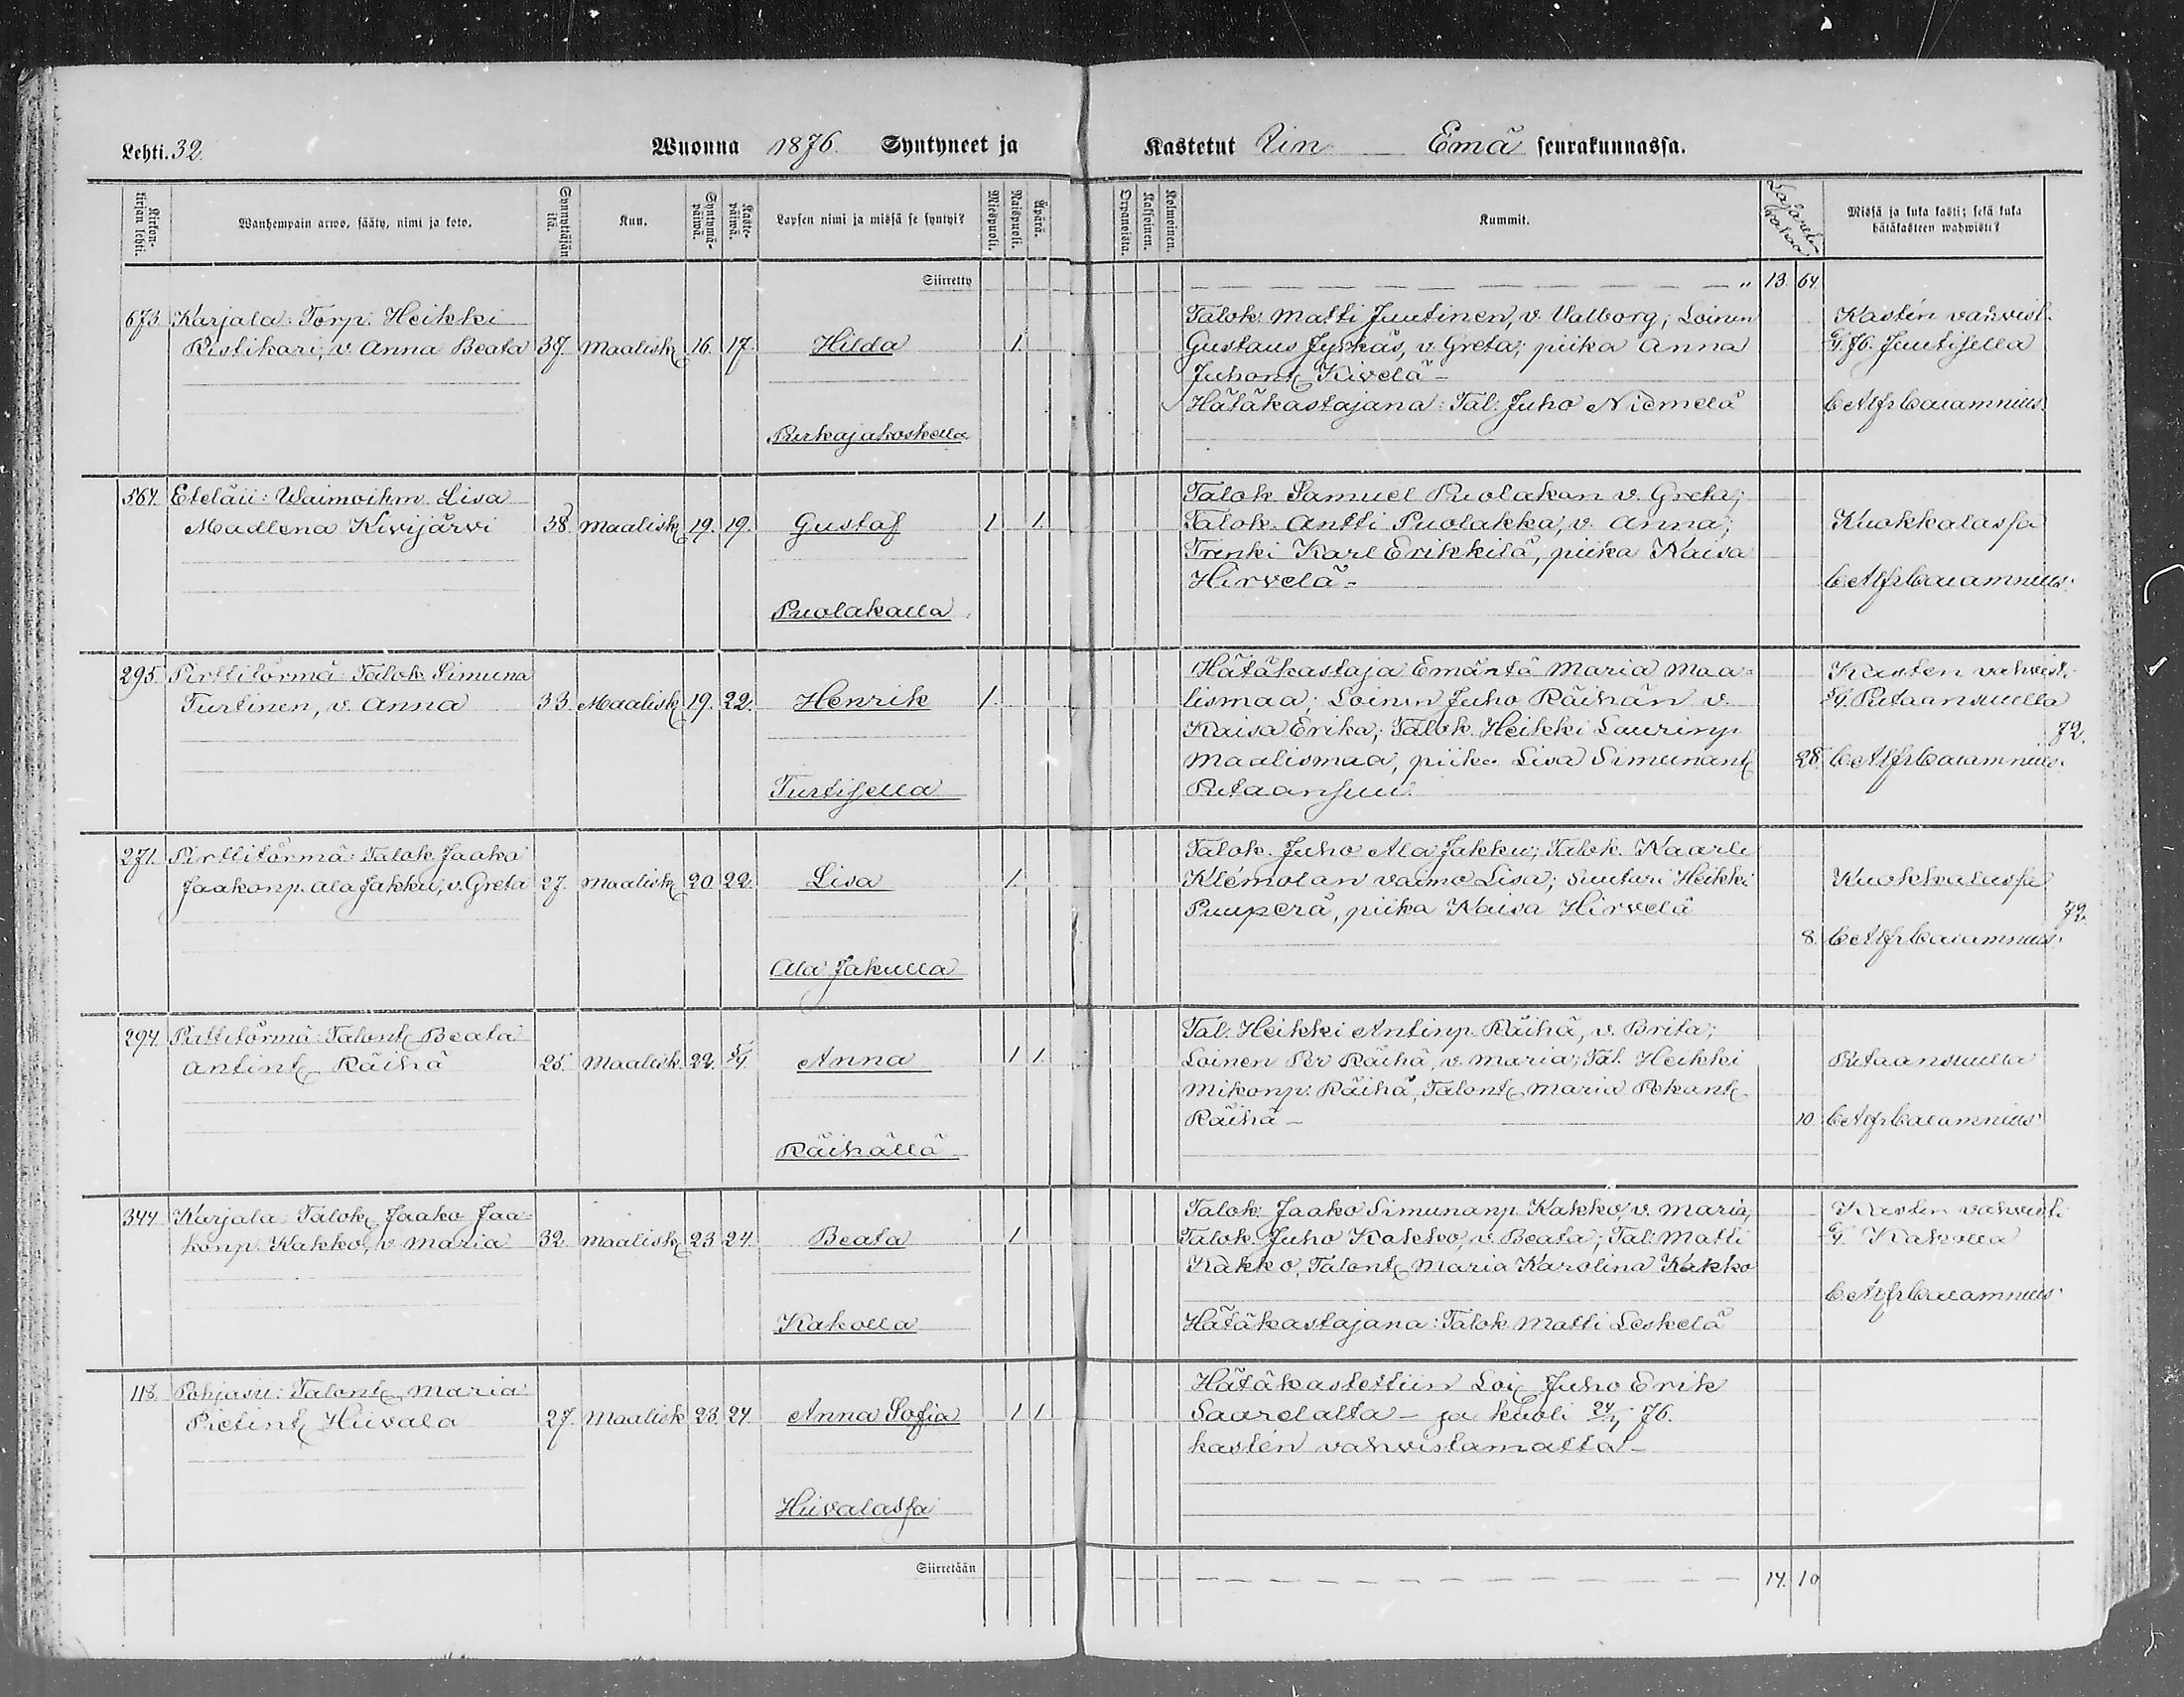 Lehti. 32.
Wuonna 1876. Syntyneet ja
Kastetut Iin Emä seurakunnassa.
Kirkonkirjan lehti.
Wanhempain arwo, sääty, nimi ja koto.
Synnyttäjän ikä.
Kuu.
Syntymäpäiwä.
Kastepäiwä.
Lapsen nimi ja missä se syntyi?
Miespuoli.
Naispuoli.
Äpärä.
Orpanoista.
Kaksoinen.
Kolmoinen.
Kummit.
Missä ja kuka kasti; sekä kuka
hätäkasteen wahwisti?
Siirretty
— — — " 13. 64.
673. Karjala: Torp. Heikki
Ristikari, v. Anna Beata 37. Maalisk 16. 17. Hilda 1.
Purkajakoskella
Talok. Matti Juutinen, v. Valborg; Loinen
Gustaus Jyrkäs, v. Greta; piika Anna
Juhont Kivelä –
Hätäkastajana: Tal. Juho Niemelä
Kastén vahvist.
Juutisella
C Alfr Calamnius.
564. Eteläii: Waimoihm. Lisa
Madlena Kivijärvi 38. Maalisk 19. 19. Gustaf 1. 1.
Puolakalla
Talok. Samuel Puolakan v. Greta;
Talok. Antti Puolakka, v. Anna;
Trenki Karl Erikkilä, piika Kaisa
Hirvelä –
Kuokkalassa
C Alfr Calamnius.
295. Pirttitörmä: Talok. Simuna
Turtinen, v. Anna 33. Maalisk 19. 22. Henrik 1.
Turtisella
Hätäkastaja Emäntä Maria Maa-
lismaa; Loinen Juho Räihän v.
Kaisa Erika; Talok. Heikki Laurinp.
Maalismaa, piika Lisa Simunant
Putaansuu.
Kasten vahvist.
Putaansuulla
72.
28. C Alfr Calamnius.
271. Pirttitörmä: Talok Jaako
Jaakonp. Ala Jakku, v. Greta 27. Maalisk 20. 22. Lisa 1.
Ala Jakulla
Talok. Juho Ala Jakku; Talok. Kaarle
Klémolan vaimo Lisa; suutari Heikki
Puuperä, piika Kaisa Hirvelä
Kuokkalassa
72.
8. C Alfr Calamnius.
294. Pirttitörmä: Talont Beata
Antint Räihä 25. Maalisk. 22. 5/4. Anna 1 1.
Räihällä
Tal. Heikki Antinp. Räihä, v. Brita;
Loinen Per Räihä, v. Maria; Tal. Heikki
Mikonp. Räihä, Talont Maria Pekant
Räihä –
Putaansuulla
10. C Alfr Calamnius.
344. Karjala: Talok. Jaako Jaa-
konp. Kakko, v. Maria 32. Maalisk 23. 24. Beata 1.
Kakolla
Talok. Jaako Simunanp. Kakko, v. Maria;
Talok. Juho Kakko, v. Beata; Tal. Matti
Kakko, Talont Maria Karolina Kakko
Hätäkastajana: Talok. Matti Leskelä
Kasten vahvist.
Kakolla
C Alfr Calamnius.
118. Pohjasii: Talont Maria
Pietint Hiivala 27. Maalisk 23. 24. Anna Sofia 1 1.
Hiivalassa
Hätäkastettiin Loi Juho Erik
Saarelalta – ja kuoli 24/4 76.
kastén vahvistamatta –
Siirretään
— — — 14. 10